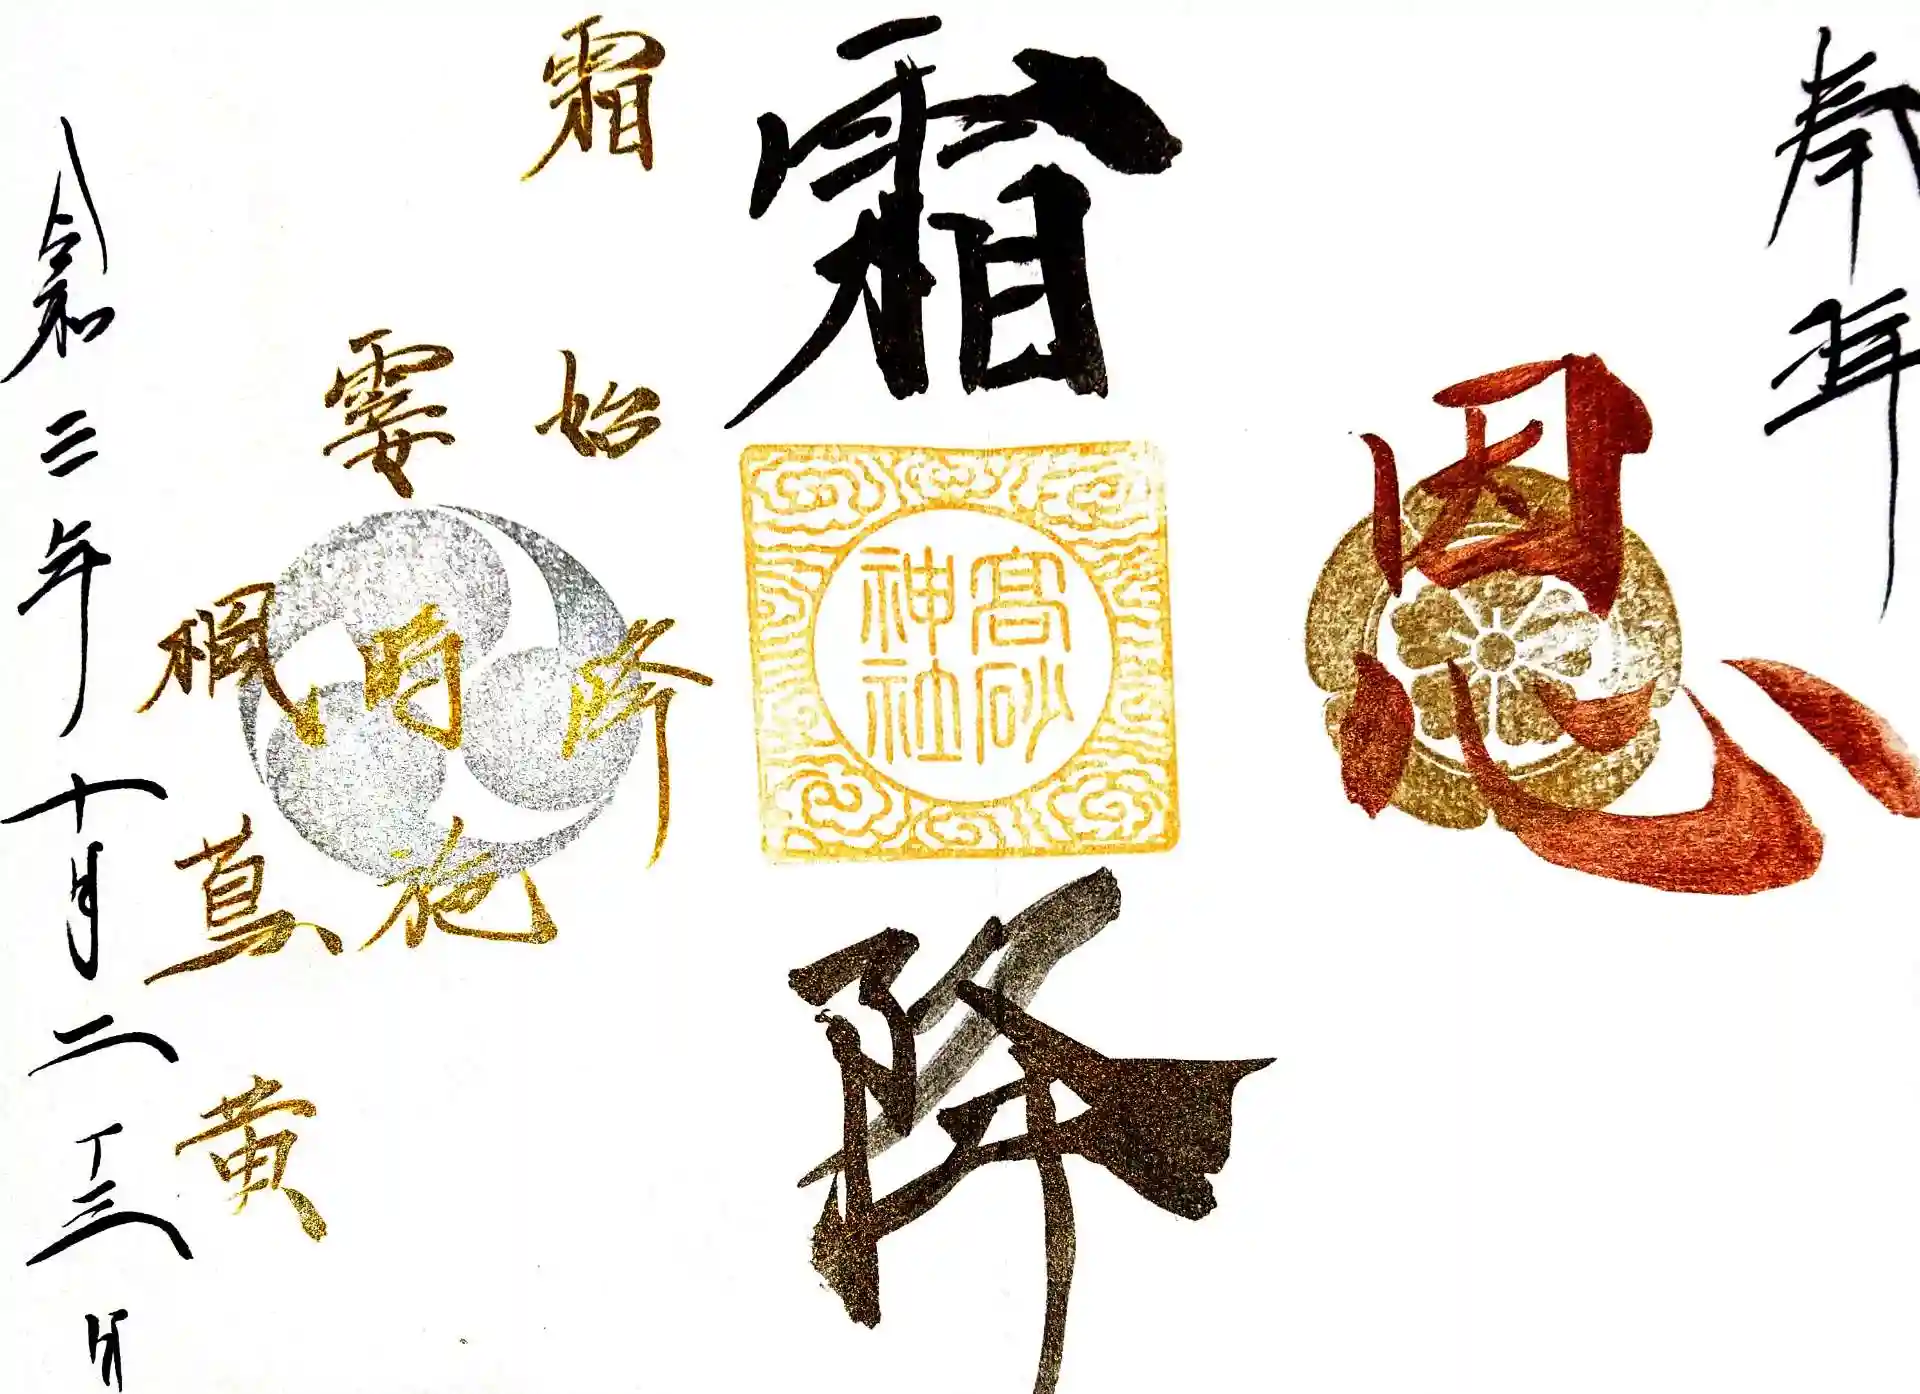 奉拝
恩
霜降
高砂
神社
霜始降
霎時施
楓蔦黄
令和三年十月二十三日